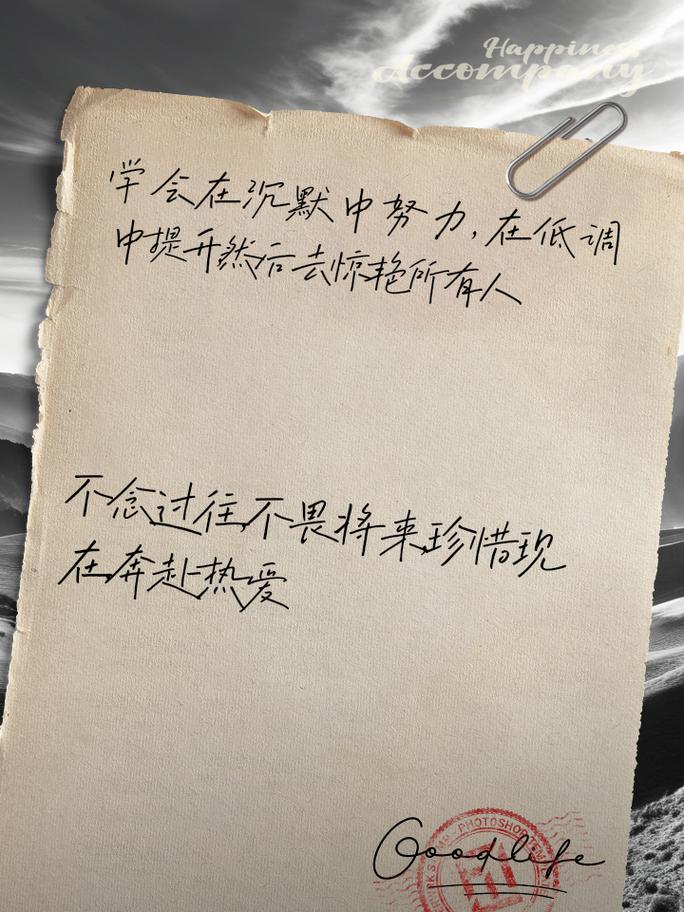 Happiness
Accompany
学会在沉默中努力,在低调
中提升然后去惊艳所有人
不念过往,不畏将来,珍惜现
在,奔赴热爱
Goodlife
PHOTOSHOP